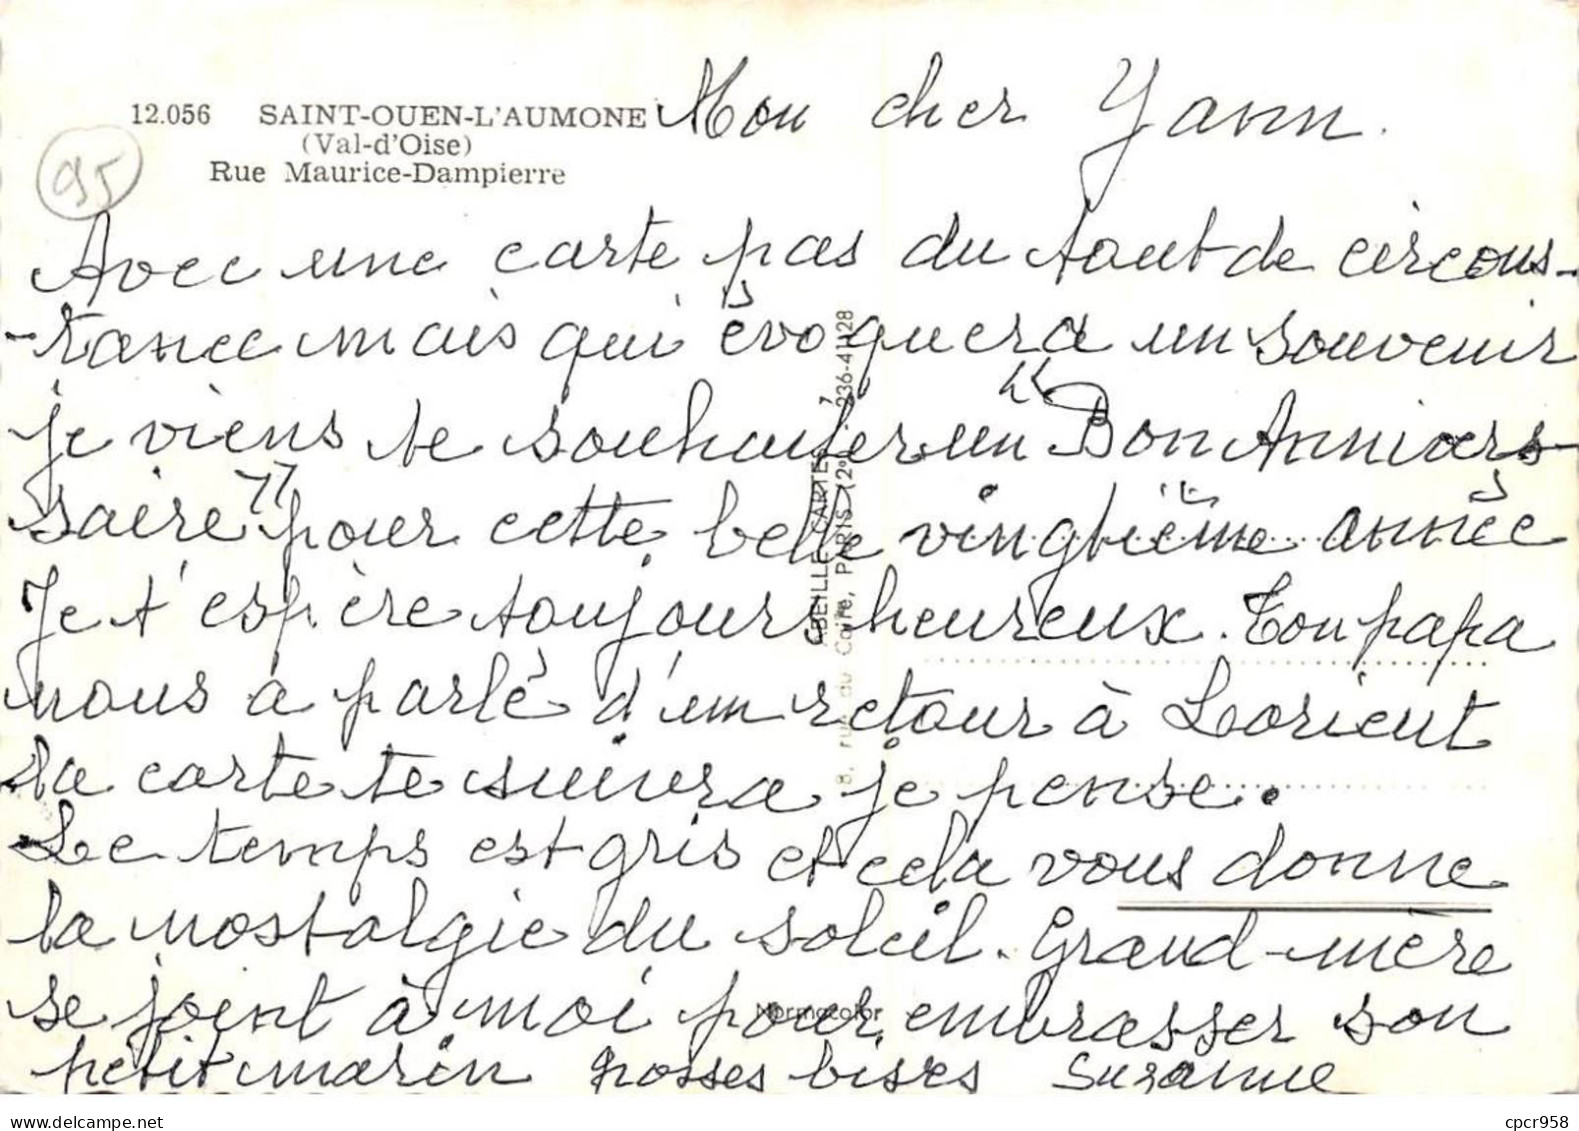 12.056 SAINT-OUEN-L'AUMONE
(Val-d'Oise)
Rue Maurice-Dampierre
95
Mon cher Yann.
Avec une carte pas du tout de circons-
-tance mais qui évoquera un souvenir
je viens te souhaiter un "Bon Annivers
saire" pour cette belle vingtième année
Je t'espère toujours heureux. Ton papa
nous a parlé d'un retour à Lorient
la carte te suivra je pense.
Le temps est gris et cela vous donne
la nostalgie du soleil. Grand-mère
se joint à moi pour embrasser son
petit marin grosses bises Suzanne
ABEILLE-CARTES
8, rue du Caire, PARIS (2e) - 236-41-28
Normocolor
cpcr958